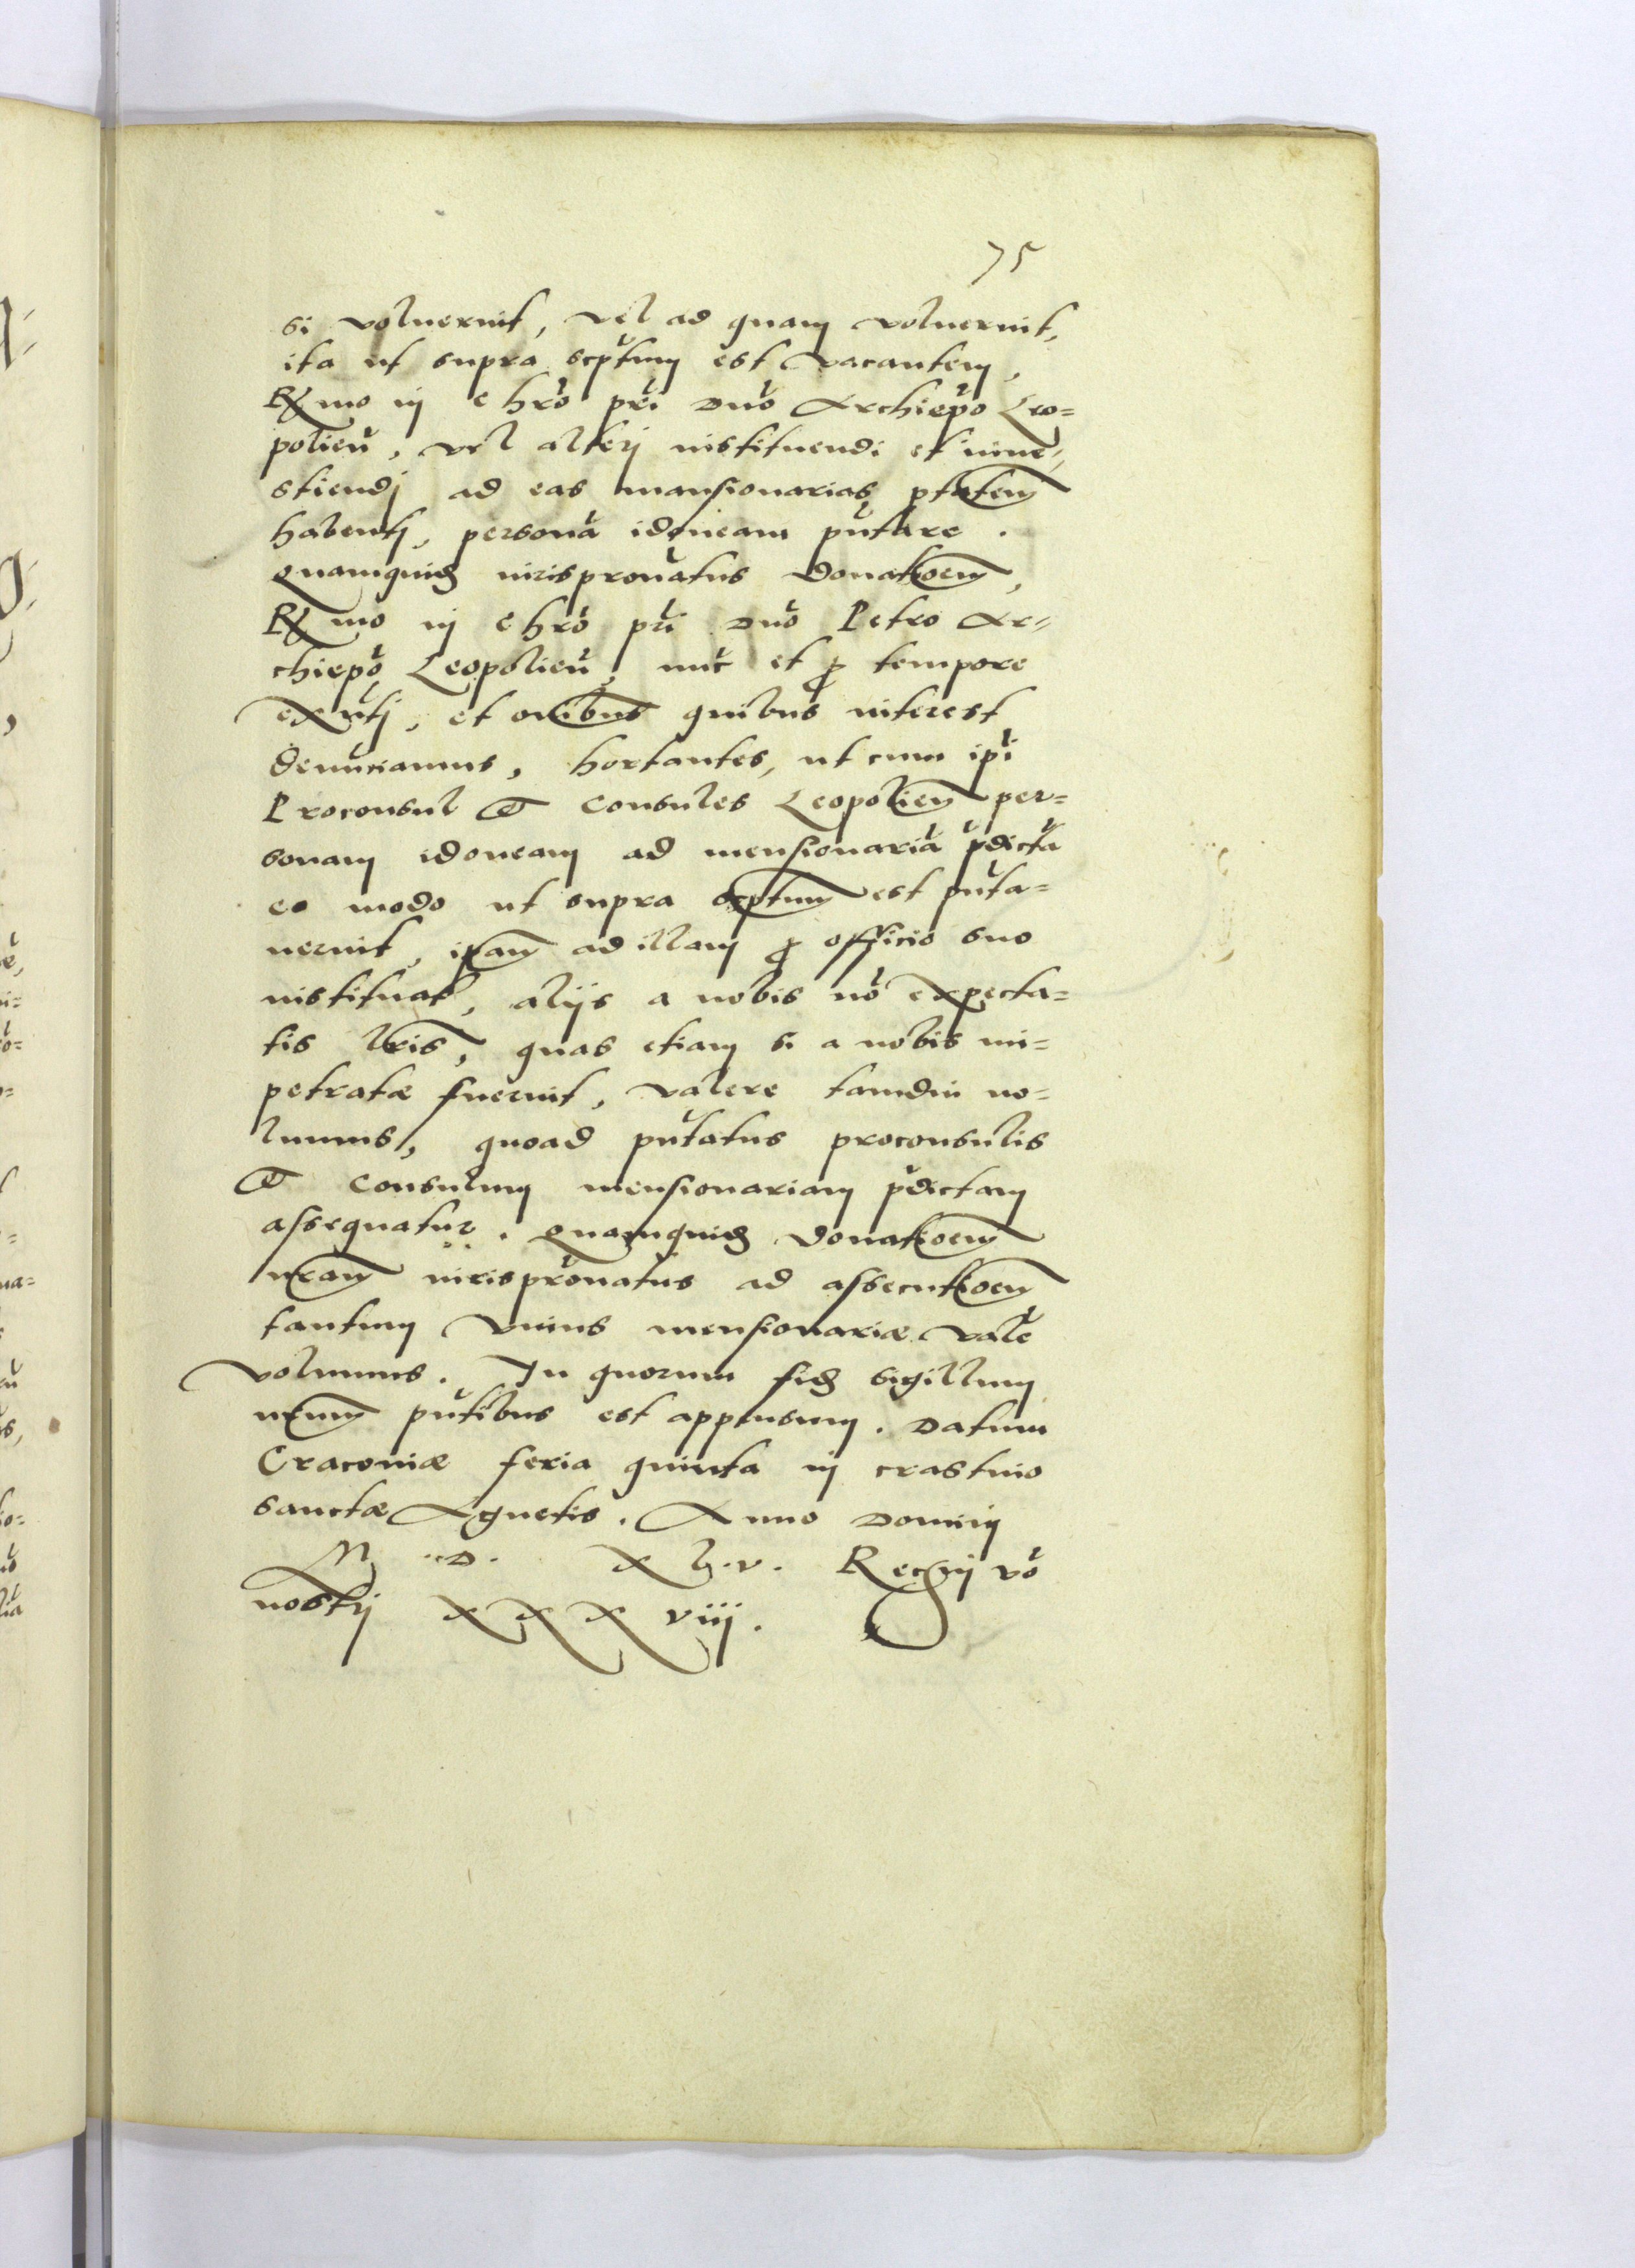 75
si voluerint, vel ad quam voluerint,
ita ut supra scptum est vacantem,
Rmo in chro pri dno Archiepo Leo=
polien, vel alteri instituendi et inve=
stiendi ad eas mansionarias ptatem
habenti, persona idoneam pntare.
Quamquid iurispronatus donationem,
Rmo in chro pri dno Petro Ar=
chiepo Leopolien, nuc et p tempore
exnti, et omibus quibus interest
denunciamus, hortantes, ut cum ipi
Proconsul et Consules Leopolien per=
sonam idoneam ad mensionaria pdicta
eo modo ut supra scptum est pnta=
uerint, ipam ad illam p officio suo
instituat, alijs a nobis no expecta=
tis lris, quas etiam si a nobis im=
petratæ fuerint, valere tamdiu no=
lumus, quoad pntatus proconsulis
et Consulum mensionariam pdictam
assequatur. Quamquid donationem
nram iurispronatus ad assecutionem
tantum vnius mensionariæ vale
volumus. In quorum fid sigillum
nrum pntibus est appensum. Datum
Cracoviæ feria quinta in crastino
sanctæ Agnetis. Anno Domini
M.D. XL.v. Regni vo
nostri XXXviij.